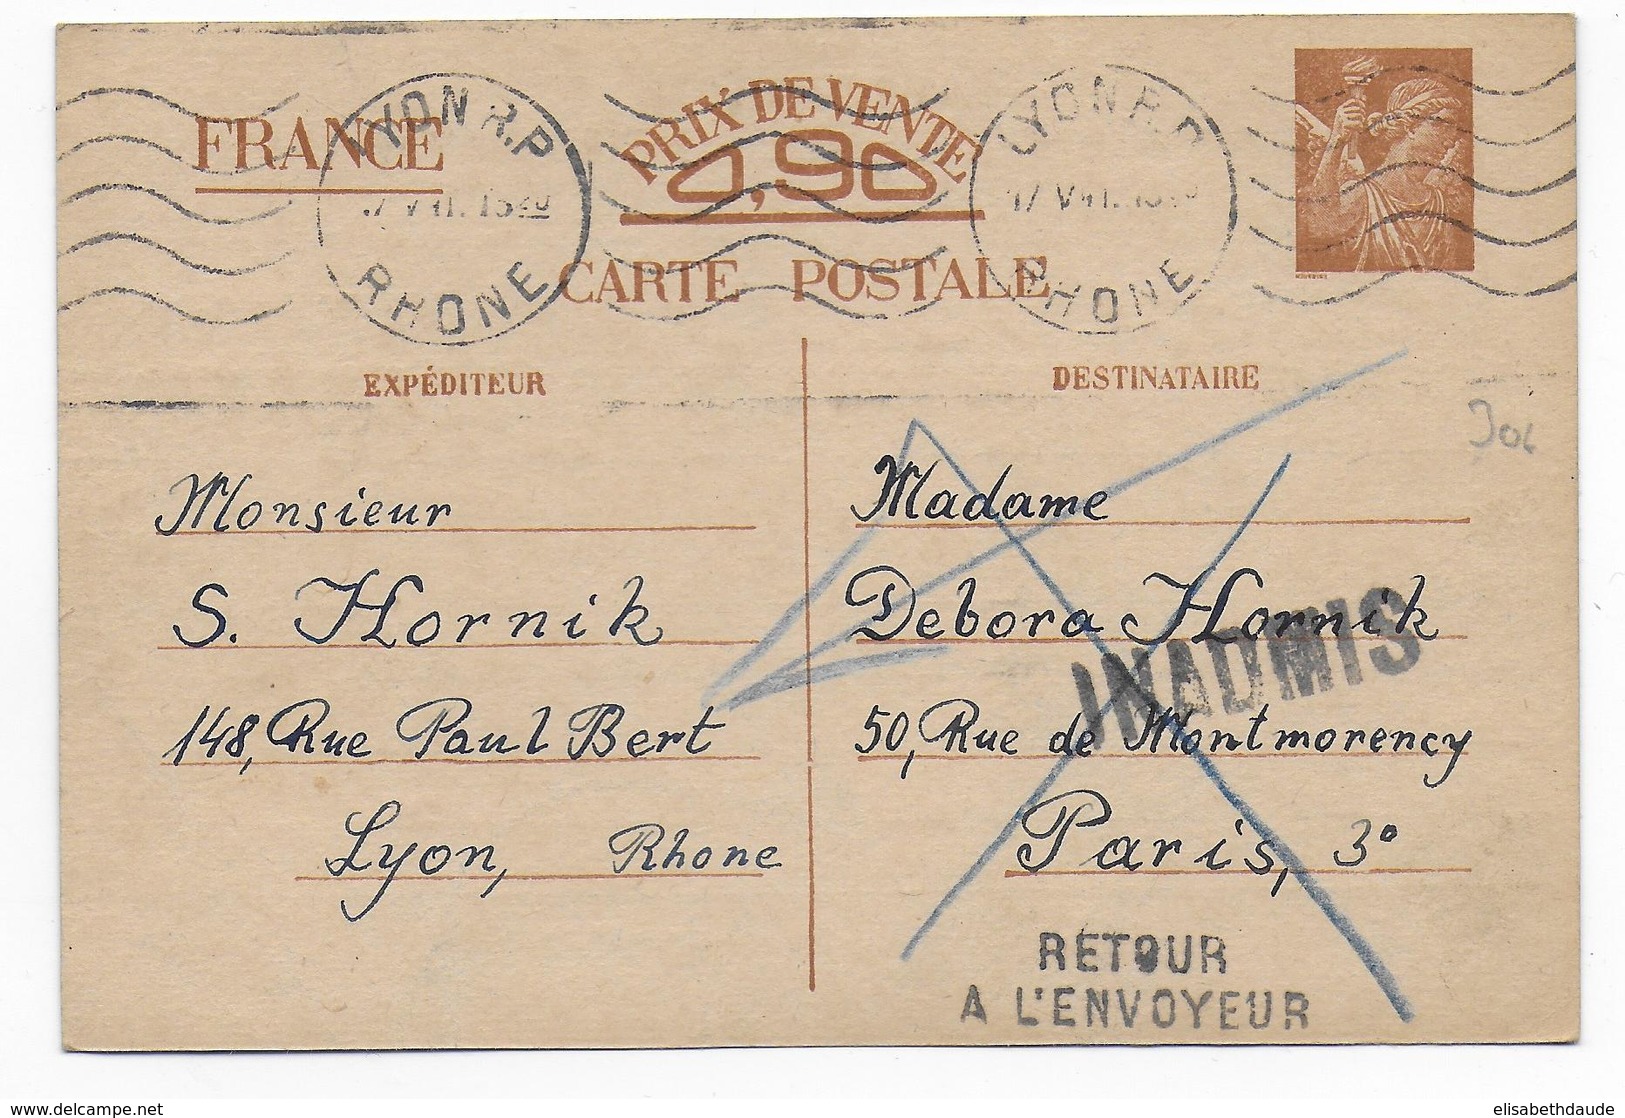 LYON R.P
RHONE
FRANCE
PRIX DE VENTE
0,90
LYON R.P
RHONE
CARTE POSTALE
EXPÉDITEUR
DESTINATAIRE
Monsieur
S. Hornik
148, Rue Paul Bert
Lyon, Rhone
Madame
Debora Hornik
INADMIS
50, Rue de Montmorency
Paris, 3º
RETOUR
A L'ENVOYEUR
www.delcampe.net
elisabethdaude